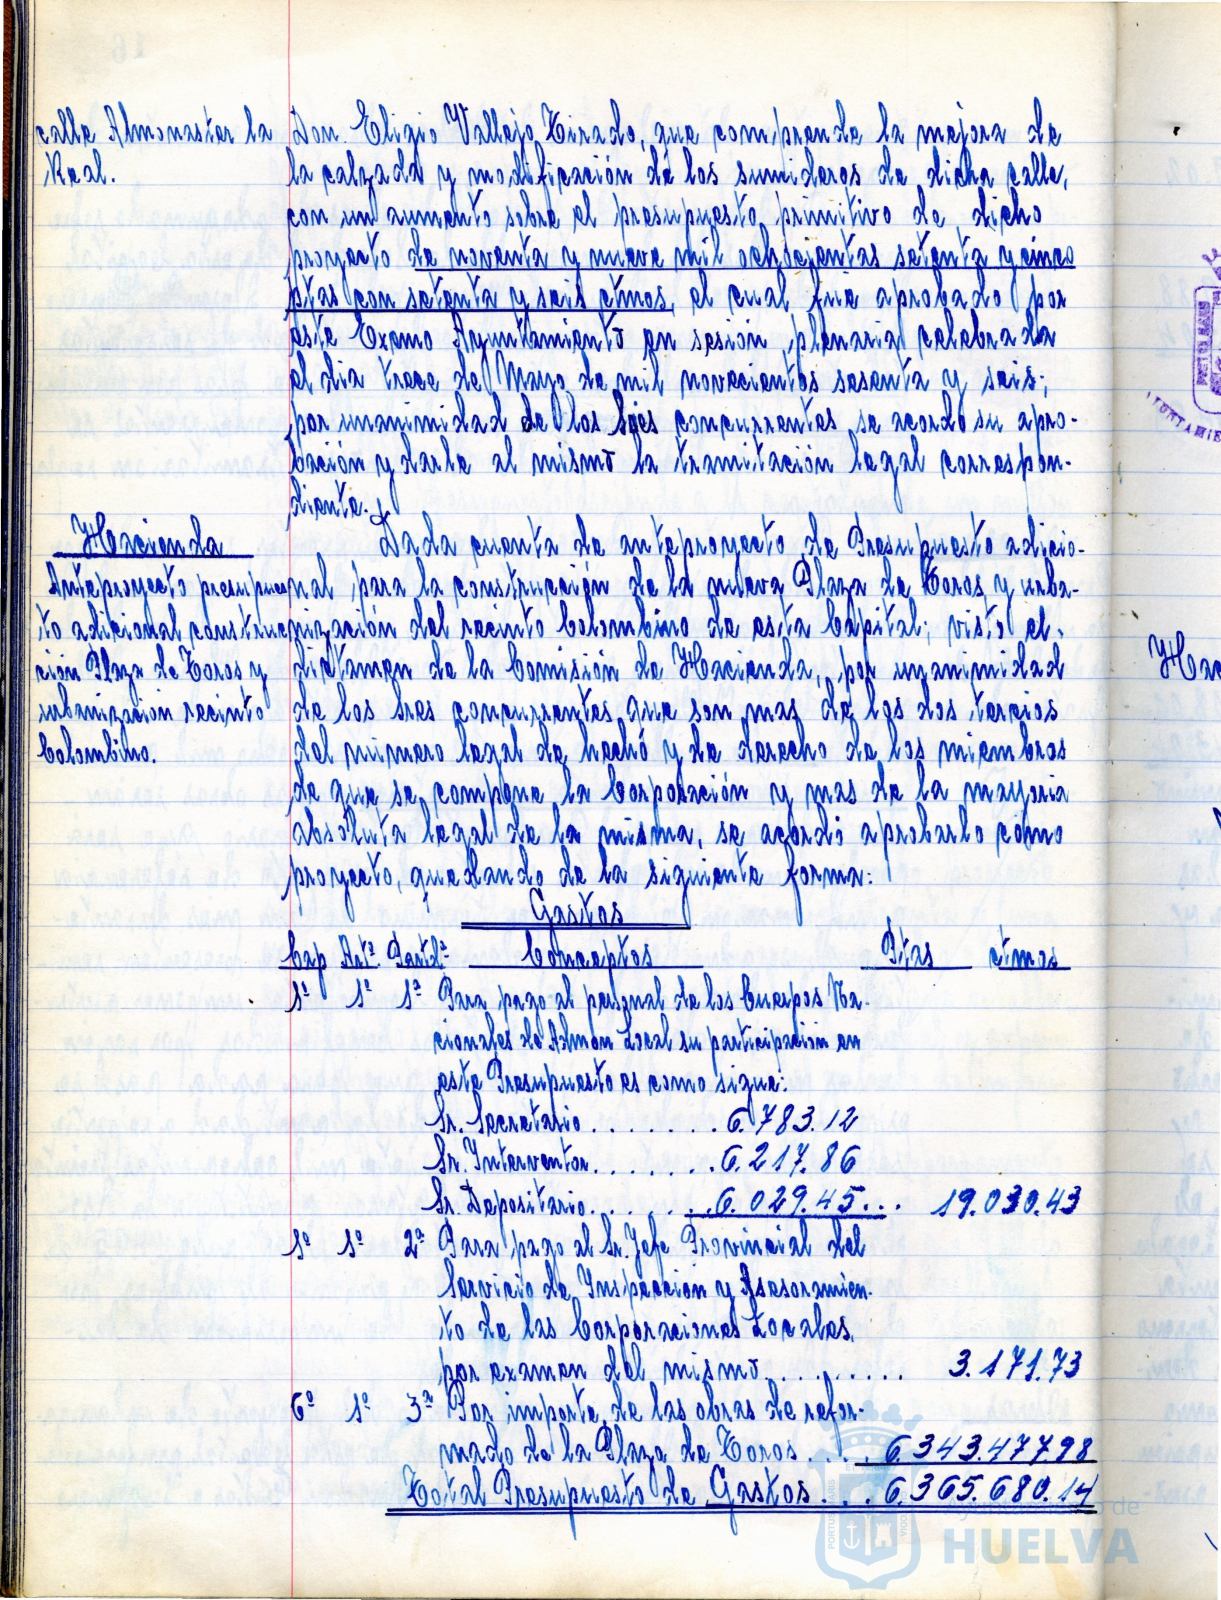 calle Almonaster la
Real.
Don Eligio Vallejo Tirado, que comprende la mejora de
la calzada y modificación de los sumideros de dicha calle,
con un aumento sobre el presupuesto primitivo de dicho
proyecto de noventa y nueve mil ochocientas setenta y cinco
ptas con setenta y seis ctmos, el cual fué aprobado por
este Excmo Ayuntamiento en sesión plenaria celebrada
el dia trece de Mayo de mil novecientos sesenta y seis;
por unanimidad de los Sres concurrentes se acordo su apro-
bación y darle al mismo la tramitación legal correspon-
diente.
Hacienda
Anteproyecto presupues
to adicional construc
ción Plaza de Toros y
urbanización recinto
Colombino.
Dada cuenta de anteproyecto de Presupuesto adicio-
nal, para la construcción de la nueva Plaza de Toros y urba-
nización del recinto Colombino de esta Capital; visto el
dictamen de la Comisión de Hacienda, por unanimidad
de los Sres concurrentes que son mas de los dos tercios
del número legal de hecho y de derecho de los miembros
de que se compone la Corporación y mas de la mayoria
absoluta legal de la misma, se acordó aprobarlo como
proyecto, quedando de la siguiente forma:
Gastos
Cap Artº Partdª Conceptos Ptas ctmos
1º 1º 1ª Para pago al personal de los Cuerpos Na-
cionales de Admon Local su participación en
este Presupuesto es como sigue:
Sr. Secretario ....... 6.783.12
Sr. Interventor ...... 6.217.86
Sr. Depositario ...... 6.029.45... 19.030.43
1º 1º 2ª Para pago al Sr. Jefe Provincial del
Servicio de Inspección y Asesoramien-
to de las Corporaciones Locales,
por examen del mismo ......... 3.171.73
6º 1º 3ª Por importe de las obras de refor-
mado de la Plaza de Toros .... 6.343.477.98
Total Presupuesto de Gastos ... 6.365.680.14
Hac
Ayuntamiento de
HUELVA